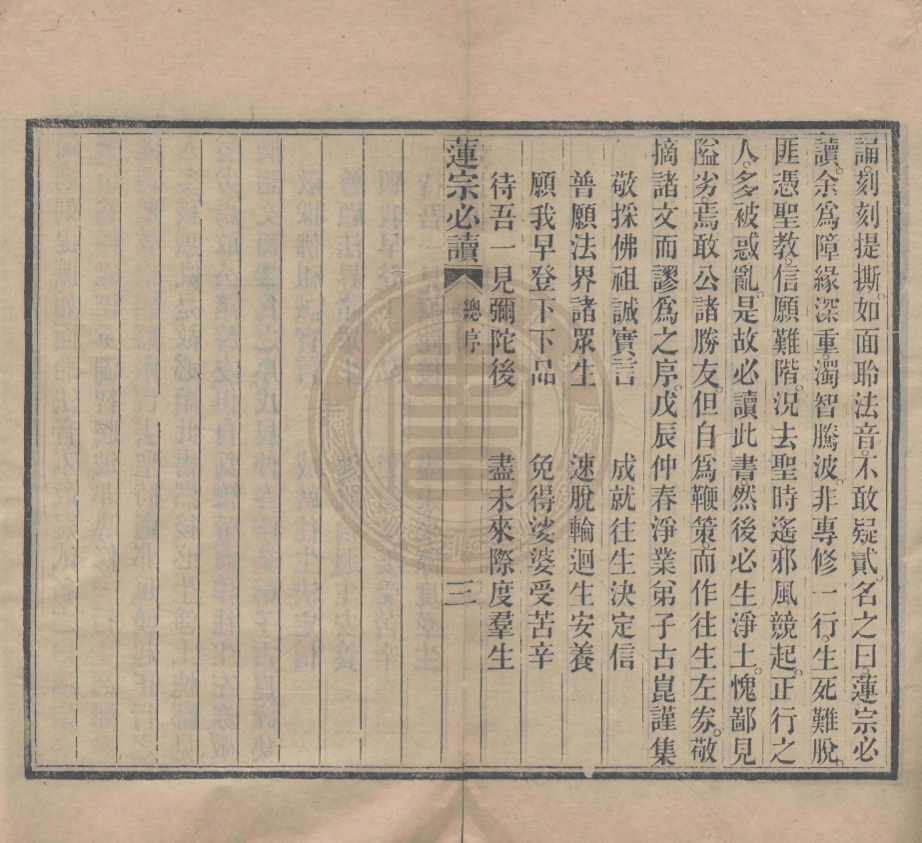 論。刻刻提撕。如面聆法音。不敢疑貳。名之曰。蓮宗必
讀。余爲障緣深重。濁智騰波。非專修一行。生死難脫。
匪憑聖教。信願難階。況去聖時遙。邪風競起。正行之
人。多被惑亂。是故必讀此書。然後必生淨土。愧鄙見
隘劣。焉敢公諸勝友。但自爲鞭策。而作往生左券。敬
摘諸文而謬爲之序。戊辰仲春淨業弟子古崑謹集
敬採佛祖誠實言　成就往生決定信
普願法界諸眾生　速脫輪迴生安養
願我早登下下品　免得娑婆受苦辛
待吾一見彌陀後　盡未來際度羣生
蓮宗必讀　總序　三